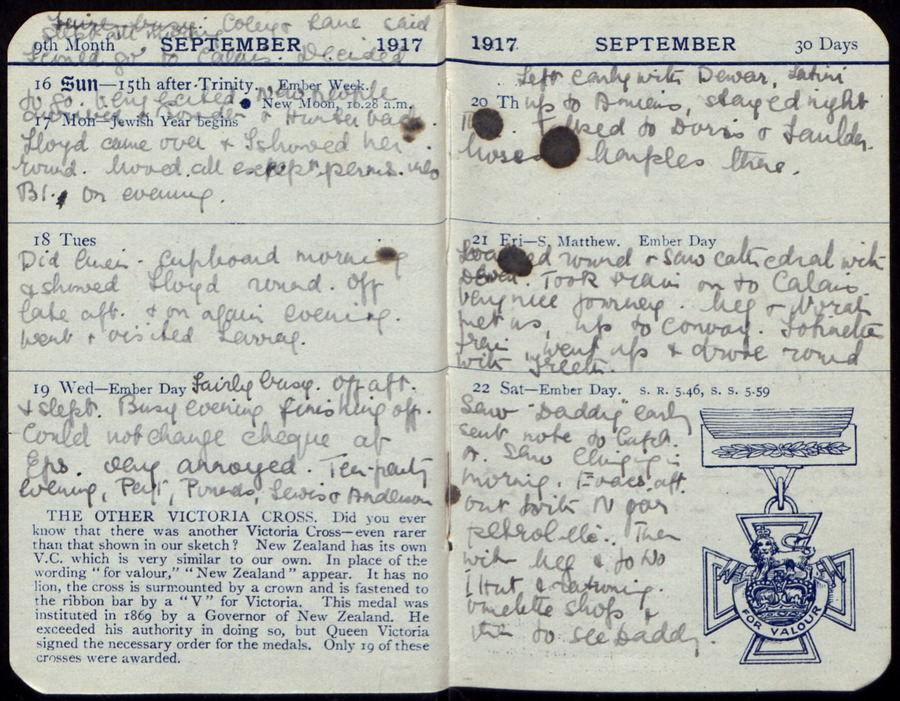 Fairly busy. Coley & Lane said
slept all morning
9th Month SEPTEMBER 1917
I could go to Calais. Decided
16 Sun—15th after Trinity. Ember Week.
to go. Very excited. New people
New Moon, 10.28 a.m.
& Hunter back.
17 Mon—Jewish Year begins
Lloyd came over & I showed her
round. Moved all except "perms" into
B1. On evening.
18 Tues
Did linen-cupboard morning
& showed Lloyd round. Off
late aft. & on again evening.
Went & visited
19 Wed—Ember Day Fairly busy. Off aft.
& slept. Busy evening finishing off.
Could not change cheque at
Eps. Very annoyed. Tea-party
evening, Lewis & Anderson
THE OTHER VICTORIA CROSS. Did you ever
know that there was another Victoria Cross—even rarer
than that shown in our sketch? New Zealand has its own
V.C. which is very similar to our own. In place of the
wording "for valour," "New Zealand" appear. It has no
lion, the cross is surmounted by a crown and is fastened to
the ribbon bar by a "V" for Victoria. This medal was
instituted in 1869 by a Governor of New Zealand. He
exceeded his authority in doing so, but Queen Victoria
signed the necessary order for the medals. Only 19 of these
crosses were awarded.
1917 SEPTEMBER 30 Days
Left early with Dewar,
20 Th up to Amiens, stayed night
Talked to Doris &
there.
21 Fri—S. Matthew. Ember Day
round & saw cathedral with
Dewar. Took train on to Calais.
Very nice journey. Meg &
met us, up to Convoy. Johnette
went up & drove round
with
22 Sat—Ember Day. S. R. 5.46, S. S. 5.59
Saw "Daddy" early
sent note to Capt.
A. Saw
morning. Evacs. aft.
out with N for
petrol etc. Then
with Meg & to No
1 Hut &
omelette shop &
then to see Daddy.
FOR VALOUR